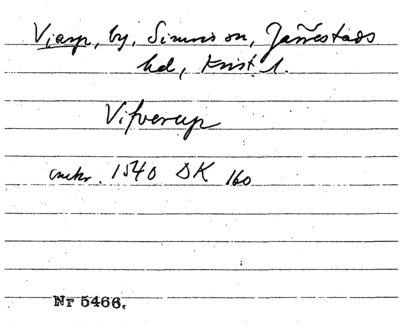 Viarp, by, Simris sn, Järrestads
hd, Krist. l.
Vifverup
omkr. 1540 DK 160
Nr 5466.